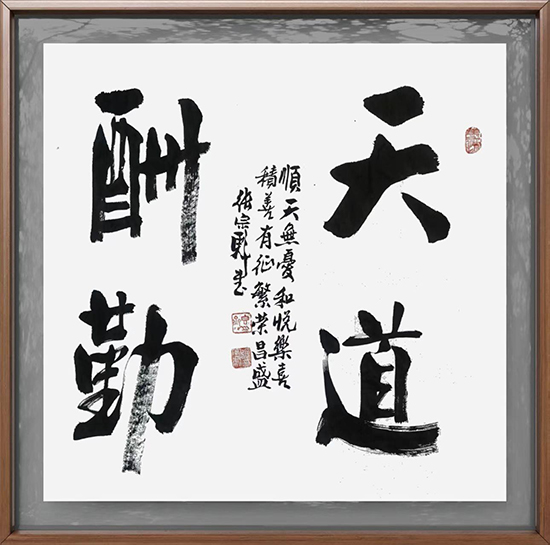 天道
酬勤
順天無憂和悅樂喜
積善有征繁榮昌盛
宗